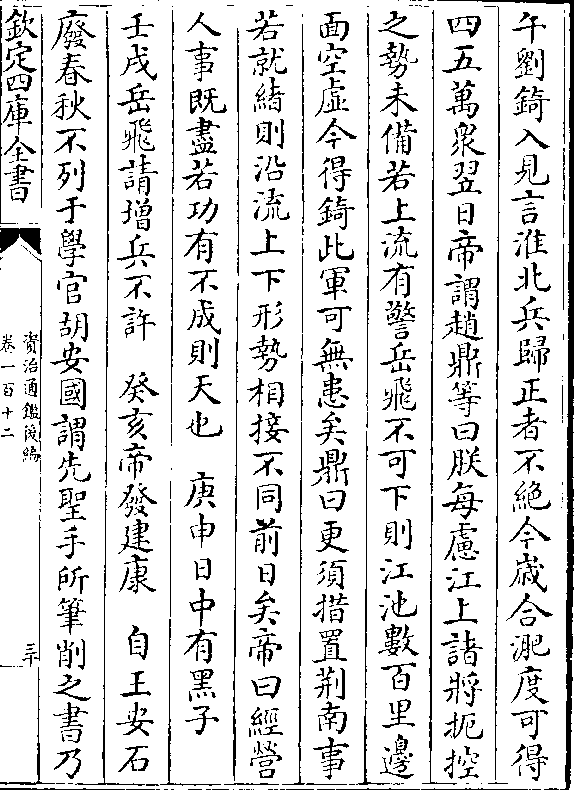 午劉錡入見言淮北兵歸正者不絶今嵗合淝度可得
四五萬衆翌日帝謂趙鼎等曰朕每慮江上諸將扼控
之勢未備若上流有警岳飛不可下則江池數百里邊
面空虚今得錡此軍可無患矣鼎曰更須措置荆南事
若就緒則沿流上下形勢相接不同前日矣帝曰經營
人事既盡若功有不成則天也　庚申日中有黑子
壬戌岳飛請增兵不許　癸亥帝發建康　自王安石
廢春秋不列于學官胡安國謂先聖手所筆削之書乃
欽定四庫全書
資治通鑑後編
卷一百十二
三十